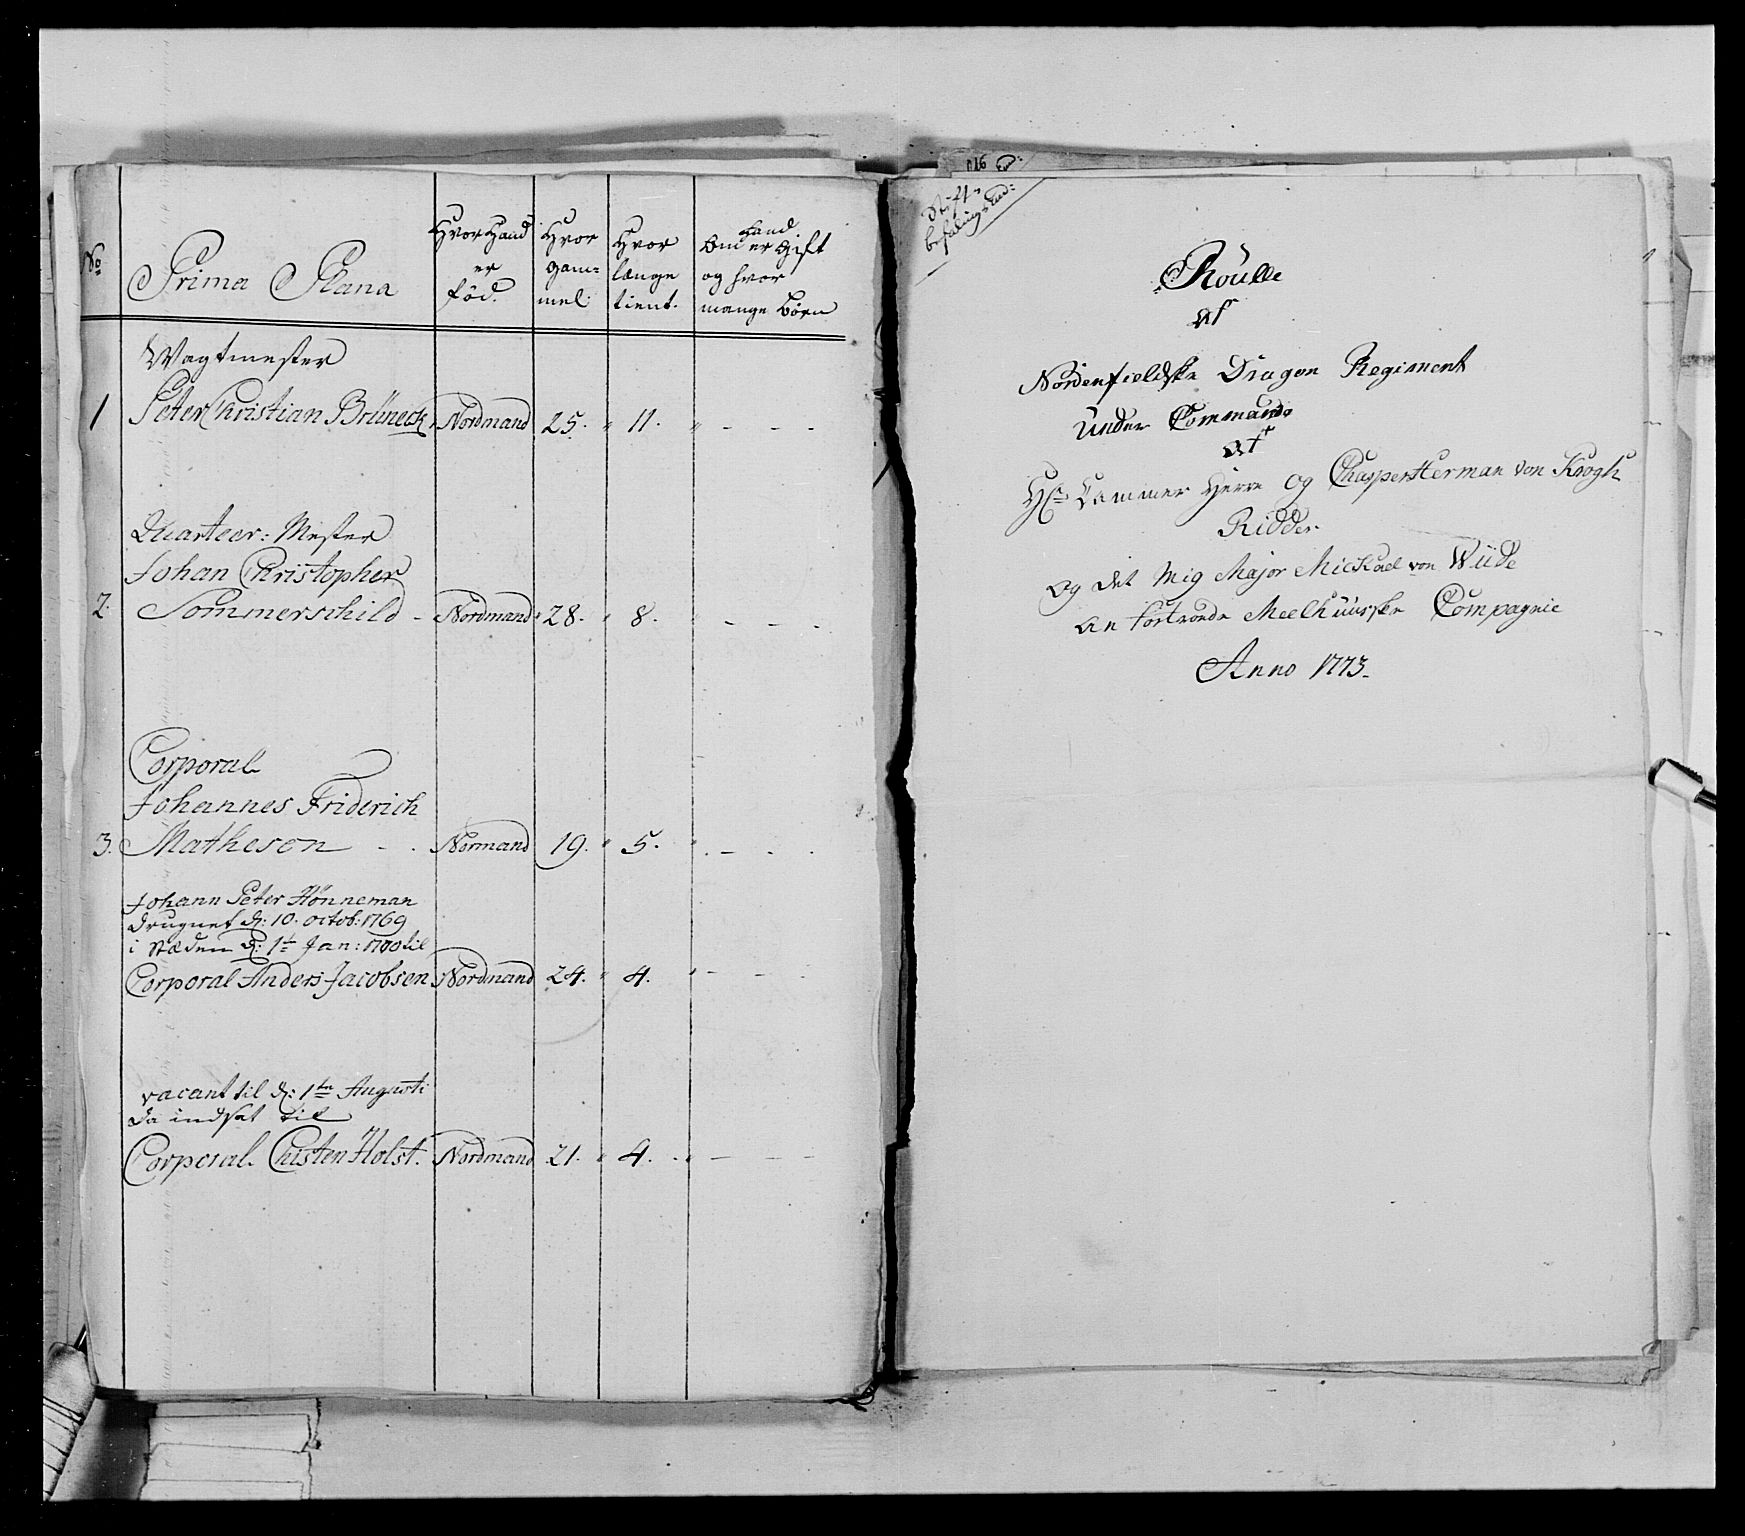 No
Prima Plana
Hvor Hand
er
fød.
Hvor
gam=
mel
Hvor
længe
tient.
Hand
Om er Gift
og hvor
mange Børn
Wagtmester
1 Peter Christian Brüneck Nordmand 25. " 11. " - - -
Quarteer: Mester
Johan Christopher
2. Sommerschild - Nordmand " 28. " 8. " - - -
Corporal
Johannes Friderich
3. Matheson - - Normand 19. " 5. " - - -
Johann Peter Hönneman
d: 10. octob: 1769
i Stæden d: 1te Jan: til
Corporal Anders Jacobsen Nordmand 24. " 4. " - - -
vacant til d: 1te Augusti
da indsat til
Corporal Christen Holst. Nordmand 21. " 4. " - - -
Stift=
befalingsmd:
Roulle
Af
Nordenfieldske Dragon Regiment
Under Commando
Af
Hr Cammer Herre Og Chasper Herman von Krogh
Ridder
Og det Mig Major Mickael von Wiide
An fortroede Meelhuuske Compagnie
Anno 1773.